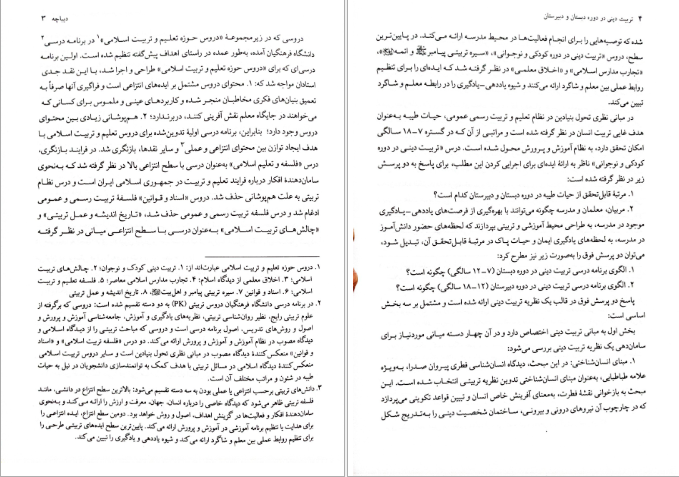 دیباچه ۳
دروسی که در زیرمجموعهٔ «دروس حوزه تعلیم و تربیت اسلامی»۱ در برنامه درسی۲
دانشگاه فرهنگیان آمده، به‌طور عمده در راستای اهداف پیش‌گفته تنظیم شده است. اولین برنامه
درسی‌ای که برای «دروس حوزه تعلیم و تربیت اسلامی» طراحی و اجرا شد، با این نقد جدی
استادان مواجه شد که: ۱. محتوای دروس مشتمل بر ایده‌های انتزاعی است و فراگیری آنها صرفاً به
تعمیق بنیان‌های فکری مخاطبان منجر شده و کاربردهای عینی و ملموس برای کسانی که
می‌خواهند در جایگاه معلم نقش آفرینی کنند، دربرندارد؛ ۲. هم‌پوشانی زیادی بین محتوای
دروس وجود دارد؛ بنابراین، برنامه درسی اولیهٔ تدوین‌شده برای دروس تعلیم و تربیت اسلامی با
هدف ایجاد توازن بین محتوای انتزاعی و عملی۳ و سایر نقدها، بازنگری شد. در فرایند بازنگری،
درس «فلسفه و تعلیم اسلامی» به‌عنوان درسی با سطح انتزاعی بالا در نظر گرفته شد که به‌نحوی
سامان‌دهندهٔ افکار درباره فرایند تعلیم و تربیت در جمهوری اسلامی ایران است و درس نظام
تربیتی به علت هم‌پوشانی حذف شد. دروس «اسناد و قوانین» و فلسفه تربیت رسمی و عمومی
ادغام شد و درس فلسفه تربیت رسمی و عمومی حذف شد، «تاریخ اندیشه و عمل تربیتی» و
«چالش‌های تربیت اسلامی» به‌عنوان درسی با سطح انتزاعی میانی در نظر گرفته
۱. دروس حوزه تعلیم و تربیت اسلامی عبارت‌اند از: ۱. تربیت دینی کودک و نوجوان؛ ۲. چالش‌های تربیت
اسلامی؛ ۳. اخلاق معلمی از دیدگاه اسلام؛ ۴. تجارب مدارس اسلامی معاصر؛ ۵. فلسفه تعلیم و تربیت
اسلامی؛ ۶. اسناد و قوانین ۷. سیره تربیتی پیامبر و اهل‌بیت؛ ۸. تاریخ اندیشه و عمل تربیتی
۲. در برنامه درسی دانشگاه فرهنگیان دروس تربیتی (PK) به دو دسته تقسیم شده است: دروسی که برگرفته از
علوم تربیتی رایج، نظیر روان‌شناسی تربیتی، نظریه‌های یادگیری و آموزش، جامعه‌شناسی آموزش و پرورش و
اصول و روش‌های تدریس، اصول برنامه درسی و است و دروسی که مباحث تربیتی را از دیدگاه اسلامی و
دیدگاه مصوب در نظام آموزش و پرورش ارائه می‌کند. دو درس «فلسفه تربیت اسلامی» و «اسناد
و قوانین» منعکس‌کنندهٔ دیدگاه مصوب در مبانی نظری تحول بنیادین است و سایر دروس تربیت اسلامی
منعکس‌کنندهٔ دیدگاه اسلامی در مسائل تربیتی با هدف کمک به توانمندسازی دانشجویان در نیل به حیات
طیبه در شئون و مراتب مختلف آن است.
۳. دانش‌های تربیتی برحسب انتزاعی یا عملی بودن به سه دسته تقسیم می‌شود: بالاترین سطح انتزاع در دانشی، مانند
فلسفه تربیتی ظاهر می‌شود که دیدگاه خاصی را درباره انسان، جهان، معرفت و ارزش را ارائه می‌کند و به‌نحوی
سامان‌دهندهٔ افکار و فعالیت‌ها در گزینش اهداف، اصول و روش خواهد بود. دومین سطح انتزاع، ایده انتزاعی را
برای هدایت یا تنظیم برنامه آموزشی در آموزش و پرورش ارائه می‌کند. پایین‌ترین سطح ایده‌های تربیتی طرحی را
برای تنظیم روابط عملی بین معلم و شاگرد ارائه می‌کند و شیوه یاددهی و یادگیری را تبیین می‌کند.
۴ تربیت دینی در دوره دبستان و دبیرستان
شده که توصیه‌هایی را برای انجام فعالیت‌ها در محیط مدرسه ارائه می‌کند. در پایین‌ترین
سطح، دروس «تربیت دینی در دوره کودکی و نوجوانی»، «سیره تربیتی پیامبر ﷺ و ائمه»،
«تجارب مدارس اسلامی» و «اخلاق معلمی» در نظر گرفته شد که ایده‌ای را برای تنظیم
روابط عملی بین معلم و شاگرد ارائه می‌کنند و شیوه یاددهی-یادگیری را در رابطه معلم و شاگرد
تبیین می‌کند.
در مبانی نظری تحول بنیادین در نظام تعلیم و تربیت رسمی عمومی، حیات طیبه به عنوان
هدف غایی تربیت انسان در نظر گرفته شده است و مراتبی از آن که در گستره ۷-۱۸ سالگی
امکان تحقق دارد، به نظام آموزش و پرورش محول شده است. درس «تربیت دینی در دوره
کودکی و نوجوانی» ناظر به ارائهٔ ایده‌ای برای اجرایی کردن این مطلب، برای پاسخ به دو پرسش
زیر در نظر گرفته شده است:
۱. مرتبهٔ قابل‌تحقق از حیات طیبه در دوره دبستان و دبیرستان کدام است؟
۲. مربیان، معلمان و مدرسه چگونه می‌توانند با بهره‌گیری از فرصت‌های یاددهی-یادگیری
موجود در مدرسه، به طراحی محیط آموزشی و تربیتی بپردازند که لحظه‌های حضور دانش‌آموز
در مدرسه، به لحظه‌های یادگیری ایمان و حیات پاک در مرتبه قابل‌تحقق آن، تبدیل شود،
می‌توان دو پرسش فوق را به‌صورت زیر نیز مطرح کرد:
۱. الگوی برنامه درسی تربیت دینی در دوره دبستان (۷-۱۲ سالگی) چگونه است؟
۲. الگوی برنامه درسی تربیت دینی در دوره دبیرستان (۱۲-۱۸ سالگی) چگونه است؟
پاسخ دو پرسش فوق در قالب یک نظریه تربیت دینی ارائه شده است و مشتمل بر سه بخش
اساسی است:
بخش اول به مبانی تربیت دینی اختصاص دارد و در آن چهار دسته مبانی موردنیاز برای
سامان‌دهی یک نظریه تربیت دینی بررسی می‌شود:
۱. مبنای انسان‌شناختی: در این مبحث، دیدگاه انسان‌شناسی فطری پیروان صدرا، به‌ویژه
علامه طباطبایی، به‌عنوان مبنای انسان‌شناختی تدوین نظریه تربیتی انتخاب شده است. این
مبحث به بازخوانی نقشهٔ فطرت، به‌معنای آفرینش خاص انسان و تبیین قواعد تکوینی می‌پردازد
که در چارچوب آن نیروهای درونی و بیرونی، ساختمان شخصیت دینی را به‌تدریج شکل